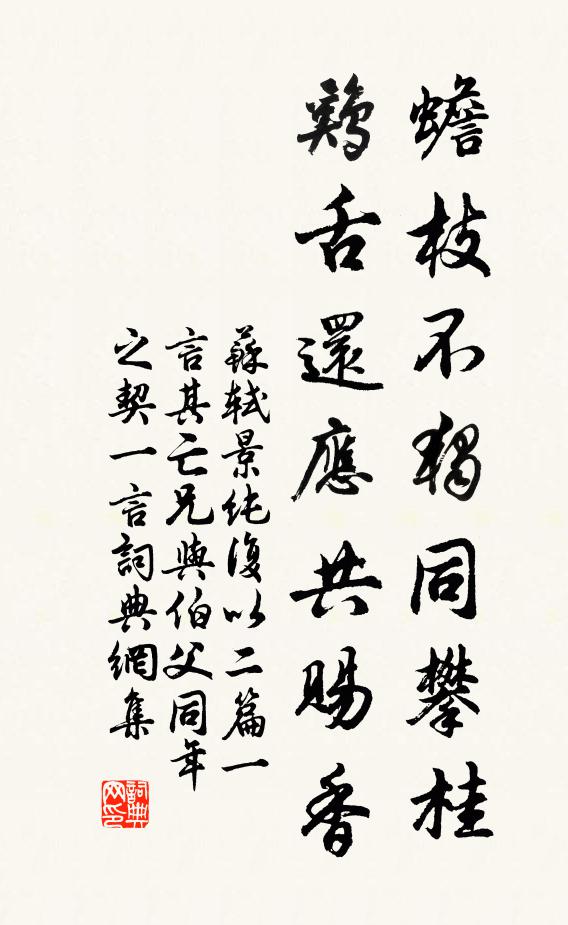 蟾枝不獨同攀桂
鷄舌還應共賜香
蘇軾景純復以二篇一
言其亡兄與伯父同年
之契一言詞典網集
詞典
网印